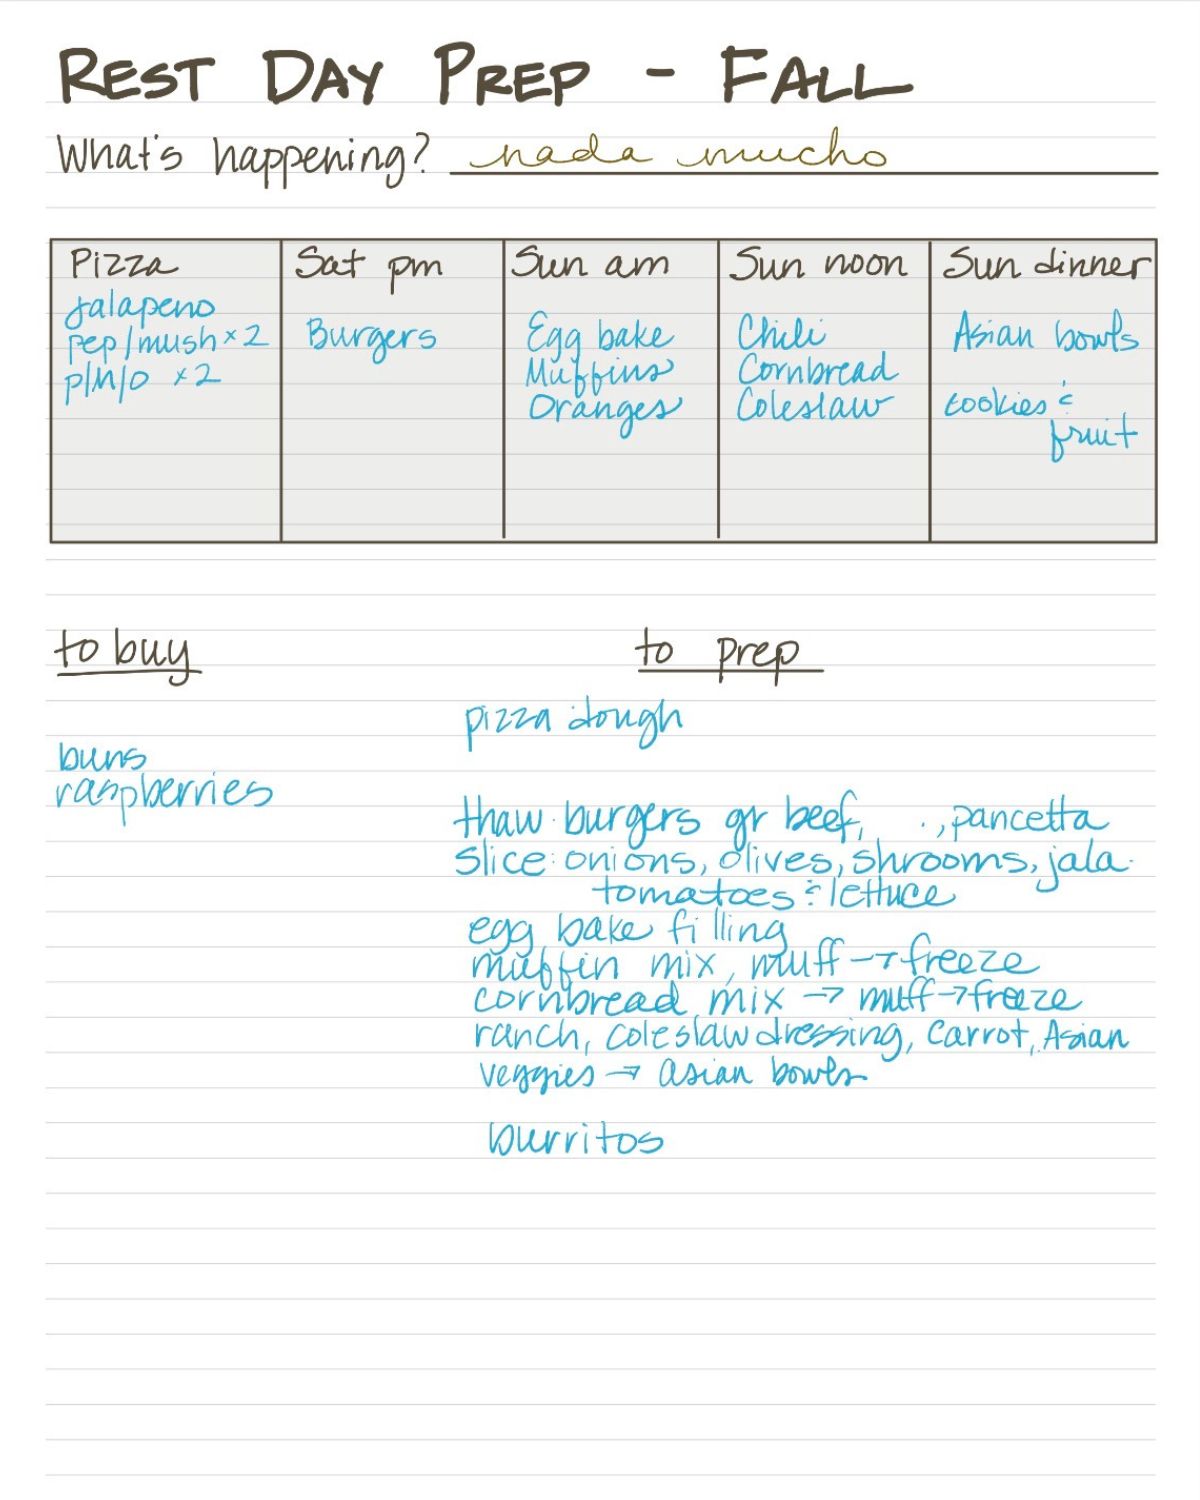 REST DAY PREP - FALL
What's happening? nada mucho
Pizza
jalapeno
pep/mush x 2
p/m/o x 2
Sat pm
Burgers
Sun am
Egg bake
Muffins
Oranges
Sun noon
Chili
Cornbread
Coleslaw
Sun dinner
Asian bowls
cookies &
fruit
to buy
buns
raspberries
to prep
pizza dough
thaw: burgers gr beef, ., pancetta
slice: onions, olives, shrooms, jala.
tomatoes & lettuce
egg bake filling
muffin mix, muff → freeze
cornbread mix → muff → freeze
ranch, coleslaw dressing, carrot, Asian
veggies → asian bowls
burritos